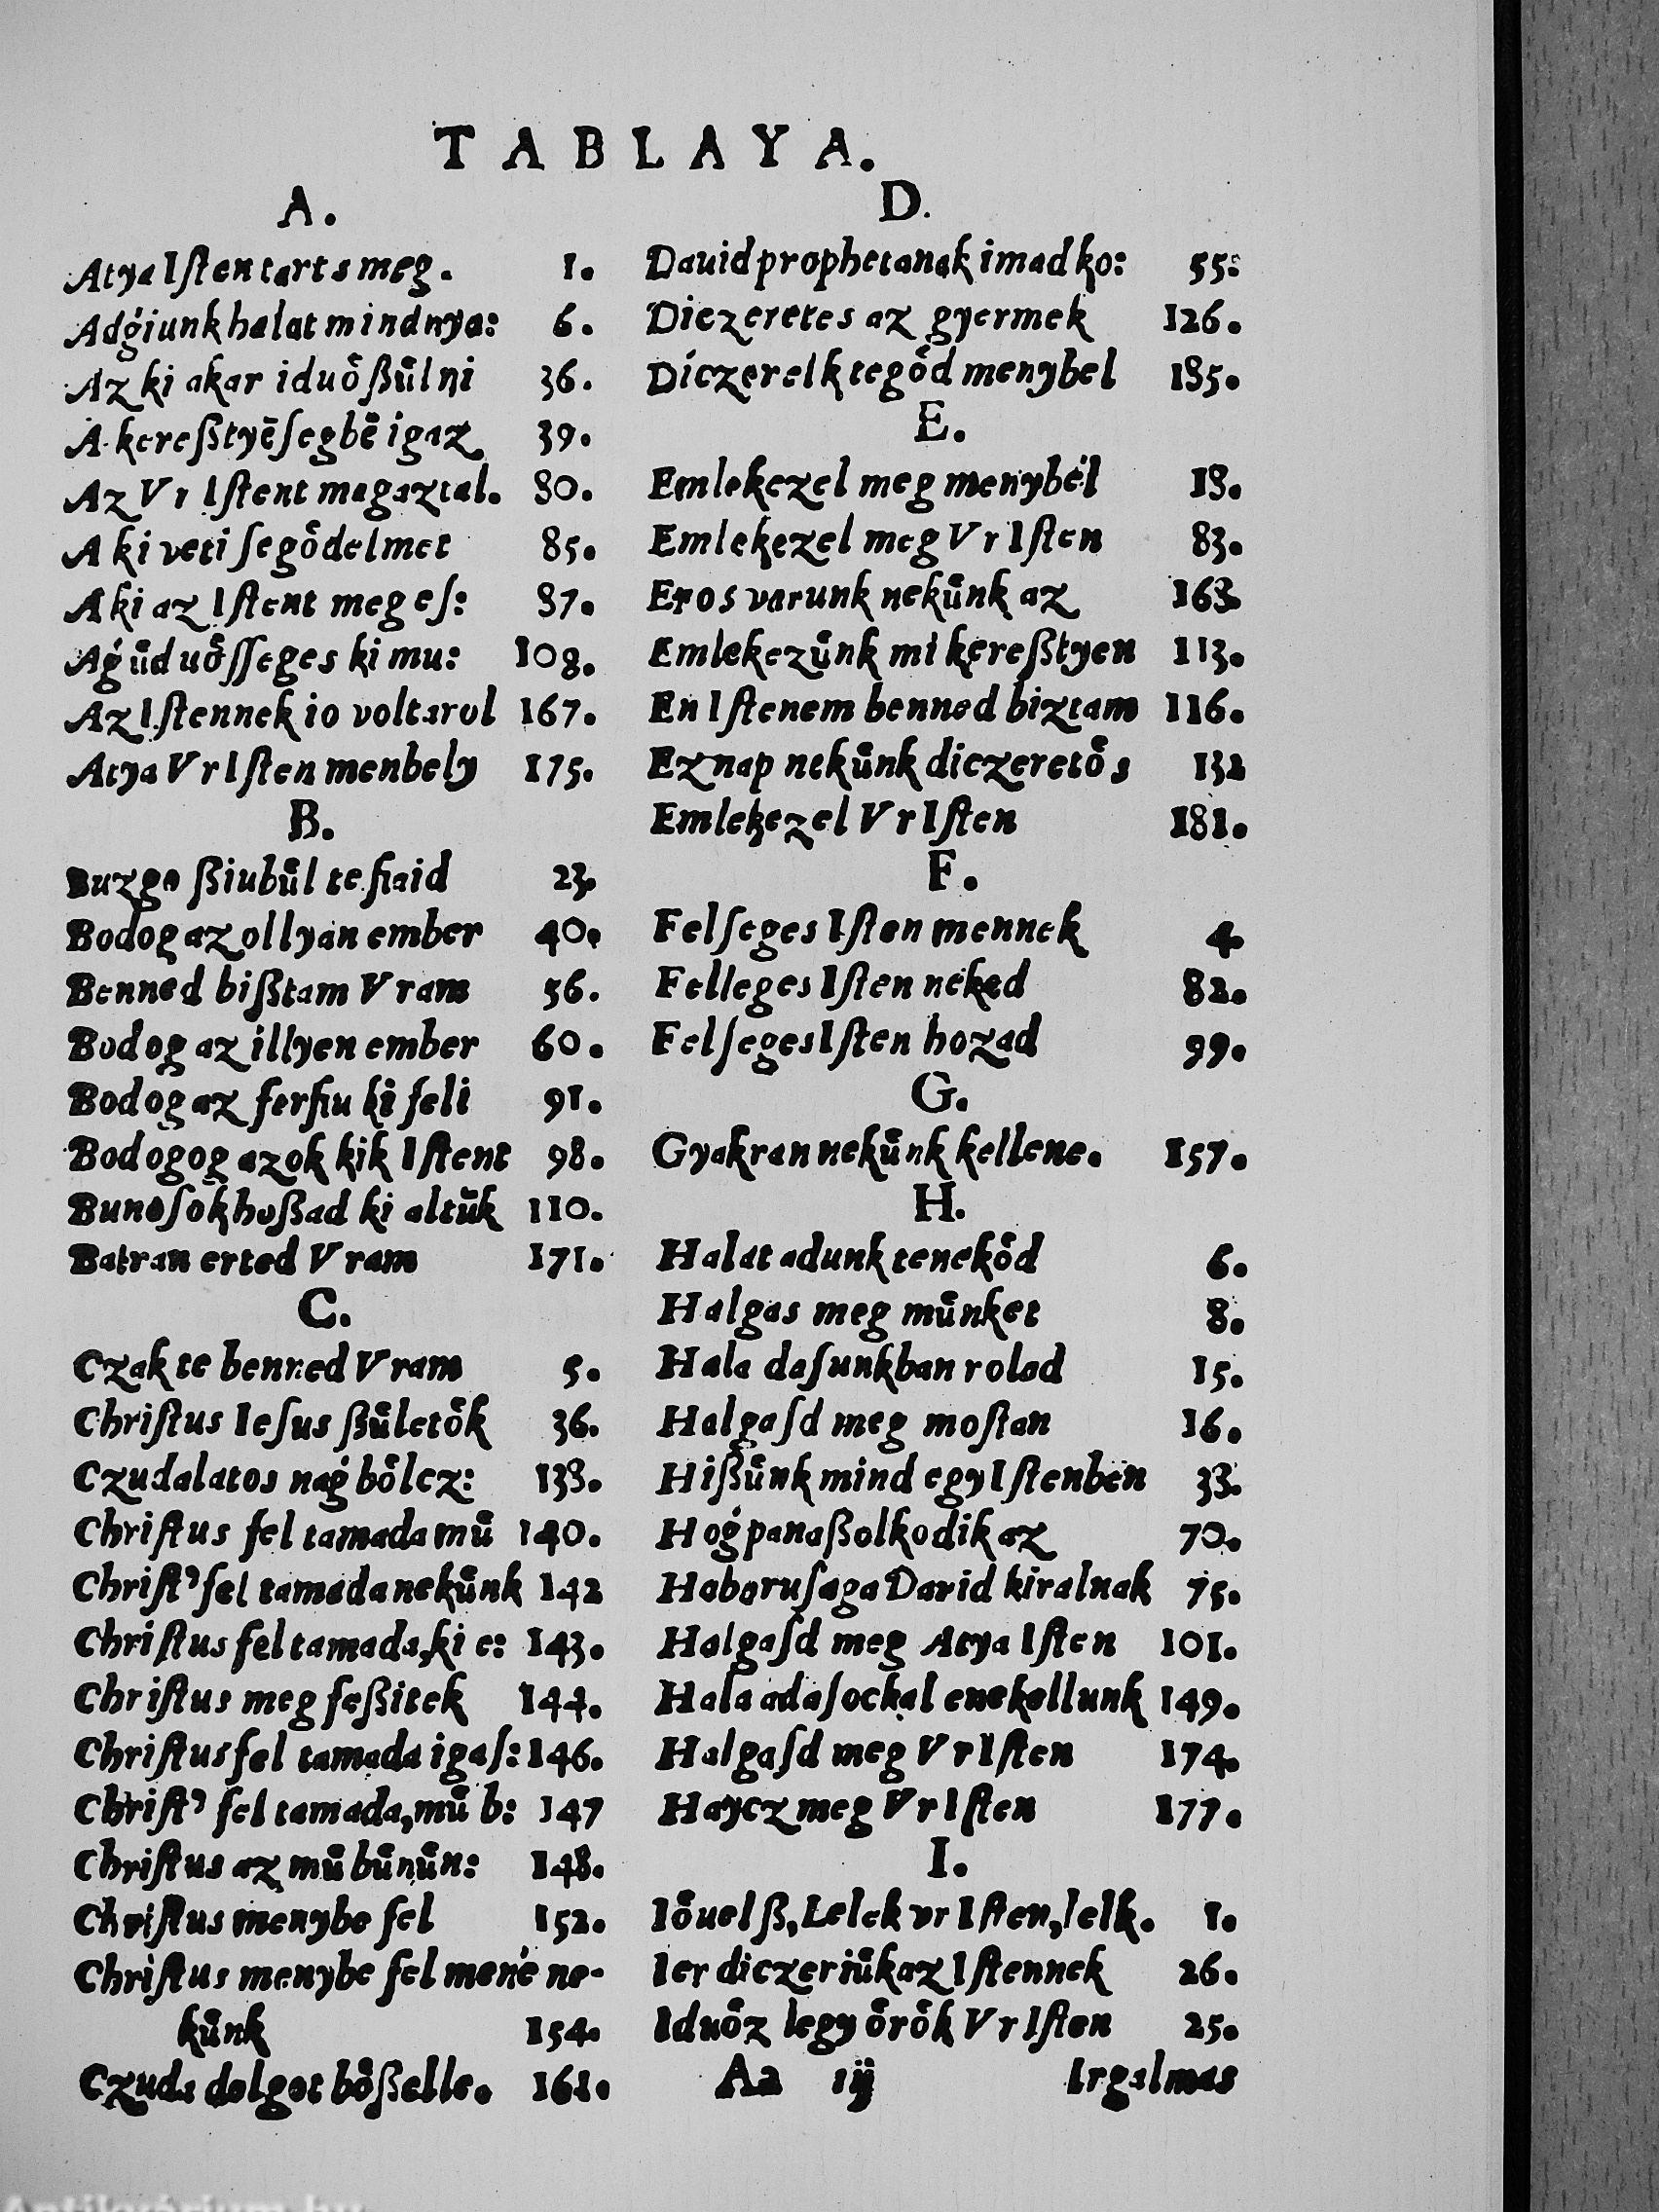 TABLAYA.
A.
Atya Iſten tarts meg. 1.
Adǵiunk halat mindnya: 6.
Az ki akar iduoͤßuͤlni 36.
A kereßtyēſegbē igaz 39.
Az Vr Iſtent magaztal. 80.
A ki veti ſegoͤdelmet 85.
A ki az Iſtent meg eſ: 87.
Aǵuͤduoͤſſeges ki mu: 108.
Az Iſtennek io voltarol 167.
Atya Vr Iſten menbely 175.
B.
Buzgo ßiubuͤl te fiaid 23.
Bodog az ollyan ember 40.
Benned bißtam Vram 56.
Bodog az illyen ember 60.
Bodog az ferfiu ki feli 91.
Bodogog azok kik Iſtent 98.
Bunoſok hoßad ki altuͤk 110.
Batran erted Vram 171.
C.
Czak te benned Vram 5.
Chriſtus Ieſus ßuͤletoͤk 36.
Czudalatos naǵ boͤlcz: 138.
Chriſtus fel tamada muͤ 140.
Chriſtꝰ fel tamada nekuͤnk 142
Chriſtus fel tamada,ki e: 143.
Chriſtus meg feßitek 144.
Chriſtus fel tamada igaſ: 146.
Chriſtꝰ fel tamada,muͤ b: 147
Chriſtus az muͤ buͤnuͤn: 148.
Chriſtus menybe fel 152.
Chriſtus menybe fel mené ne-
kuͤnk 154.
Czuda dolgot boͤßelle. 161.
D.
Dauid prophetanak imadko: 55:
Diczeretes az gyermek 126.
Diczerelk tegoͤd menybel 185.
E.
Emlekezel meg menybél 18.
Emlekezel meg Vr Iſten 83.
Eros varunk nekuͤnk az 163.
Emlekezuͤnk mi kereßtyen 113.
En Iſtenem benned biztam 116.
Ez nap nekuͤnk diczeretoͤs 132
Emlekezel Vr Iſten 181.
F.
Felſeges Iſten mennek 4.
Felleges Iſten neked 82.
Felſeges Iſten hozad 99.
G.
Gyakran nekuͤnk kellene. 157.
H.
Halat adunk tenekoͤd 6.
Halgas meg muͤnket 8.
Hala daſunkban rolad 15.
Halgaſd meg moſtan 16.
Hißuͤnk mind egy Iſtenben 33.
Hoǵ panaßolkodik az 70.
Haboruſaga Dauid kiralnak 75.
Halgaſd meg Atya Iſten 101.
Hala adaſockal enekellunk 149.
Halgaſd meg Vr Iſten 174.
Haycz meg Vr Iſten 177.
I.
Ioͤuel ß, Lelek vr Iſten, lelk. 1.
Ier diczeriuͤk az Iſtennek 26.
Iduoͤz legy oͤroͤk Vr Iſten 25.
Aa iij Irgalmas